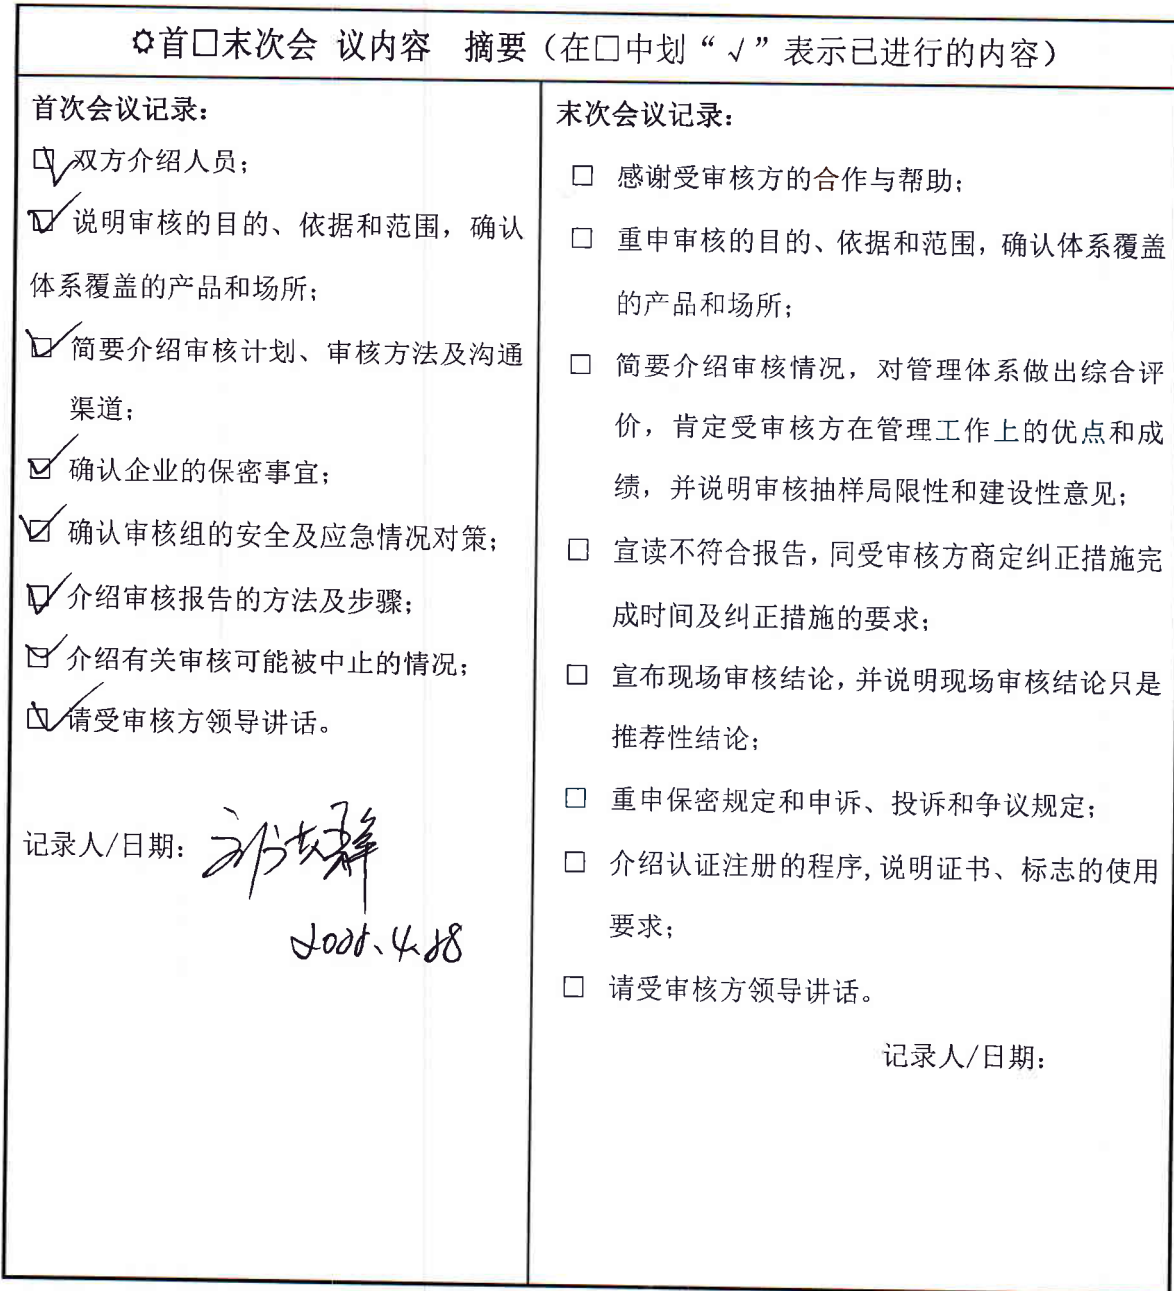 ✩首□末次会 议内容 摘要（在□中划“√”表示已进行的内容）
首次会议记录：
☑双方介绍人员；
☑说明审核的目的、依据和范围，确认
体系覆盖的产品和场所；
☑简要介绍审核计划、审核方法及沟通
渠道；
☑确认企业的保密事宜；
☑确认审核组的安全及应急情况对策；
☑介绍审核报告的方法及步骤；
☑介绍有关审核可能被中止的情况；
☑请受审核方领导讲话。
记录人/日期：
末次会议记录：
□ 感谢受审核方的合作与帮助；
□ 重申审核的目的、依据和范围，确认体系覆盖
的产品和场所；
□ 简要介绍审核情况，对管理体系做出综合评
价，肯定受审核方在管理工作上的优点和成
绩，并说明审核抽样局限性和建设性意见；
□ 宣读不符合报告，同受审核方商定纠正措施完
成时间及纠正措施的要求；
□ 宣布现场审核结论，并说明现场审核结论只是
推荐性结论；
□ 重申保密规定和申诉、投诉和争议规定；
□ 介绍认证注册的程序,说明证书、标志的使用
要求；
□ 请受审核方领导讲话。
记录人/日期：